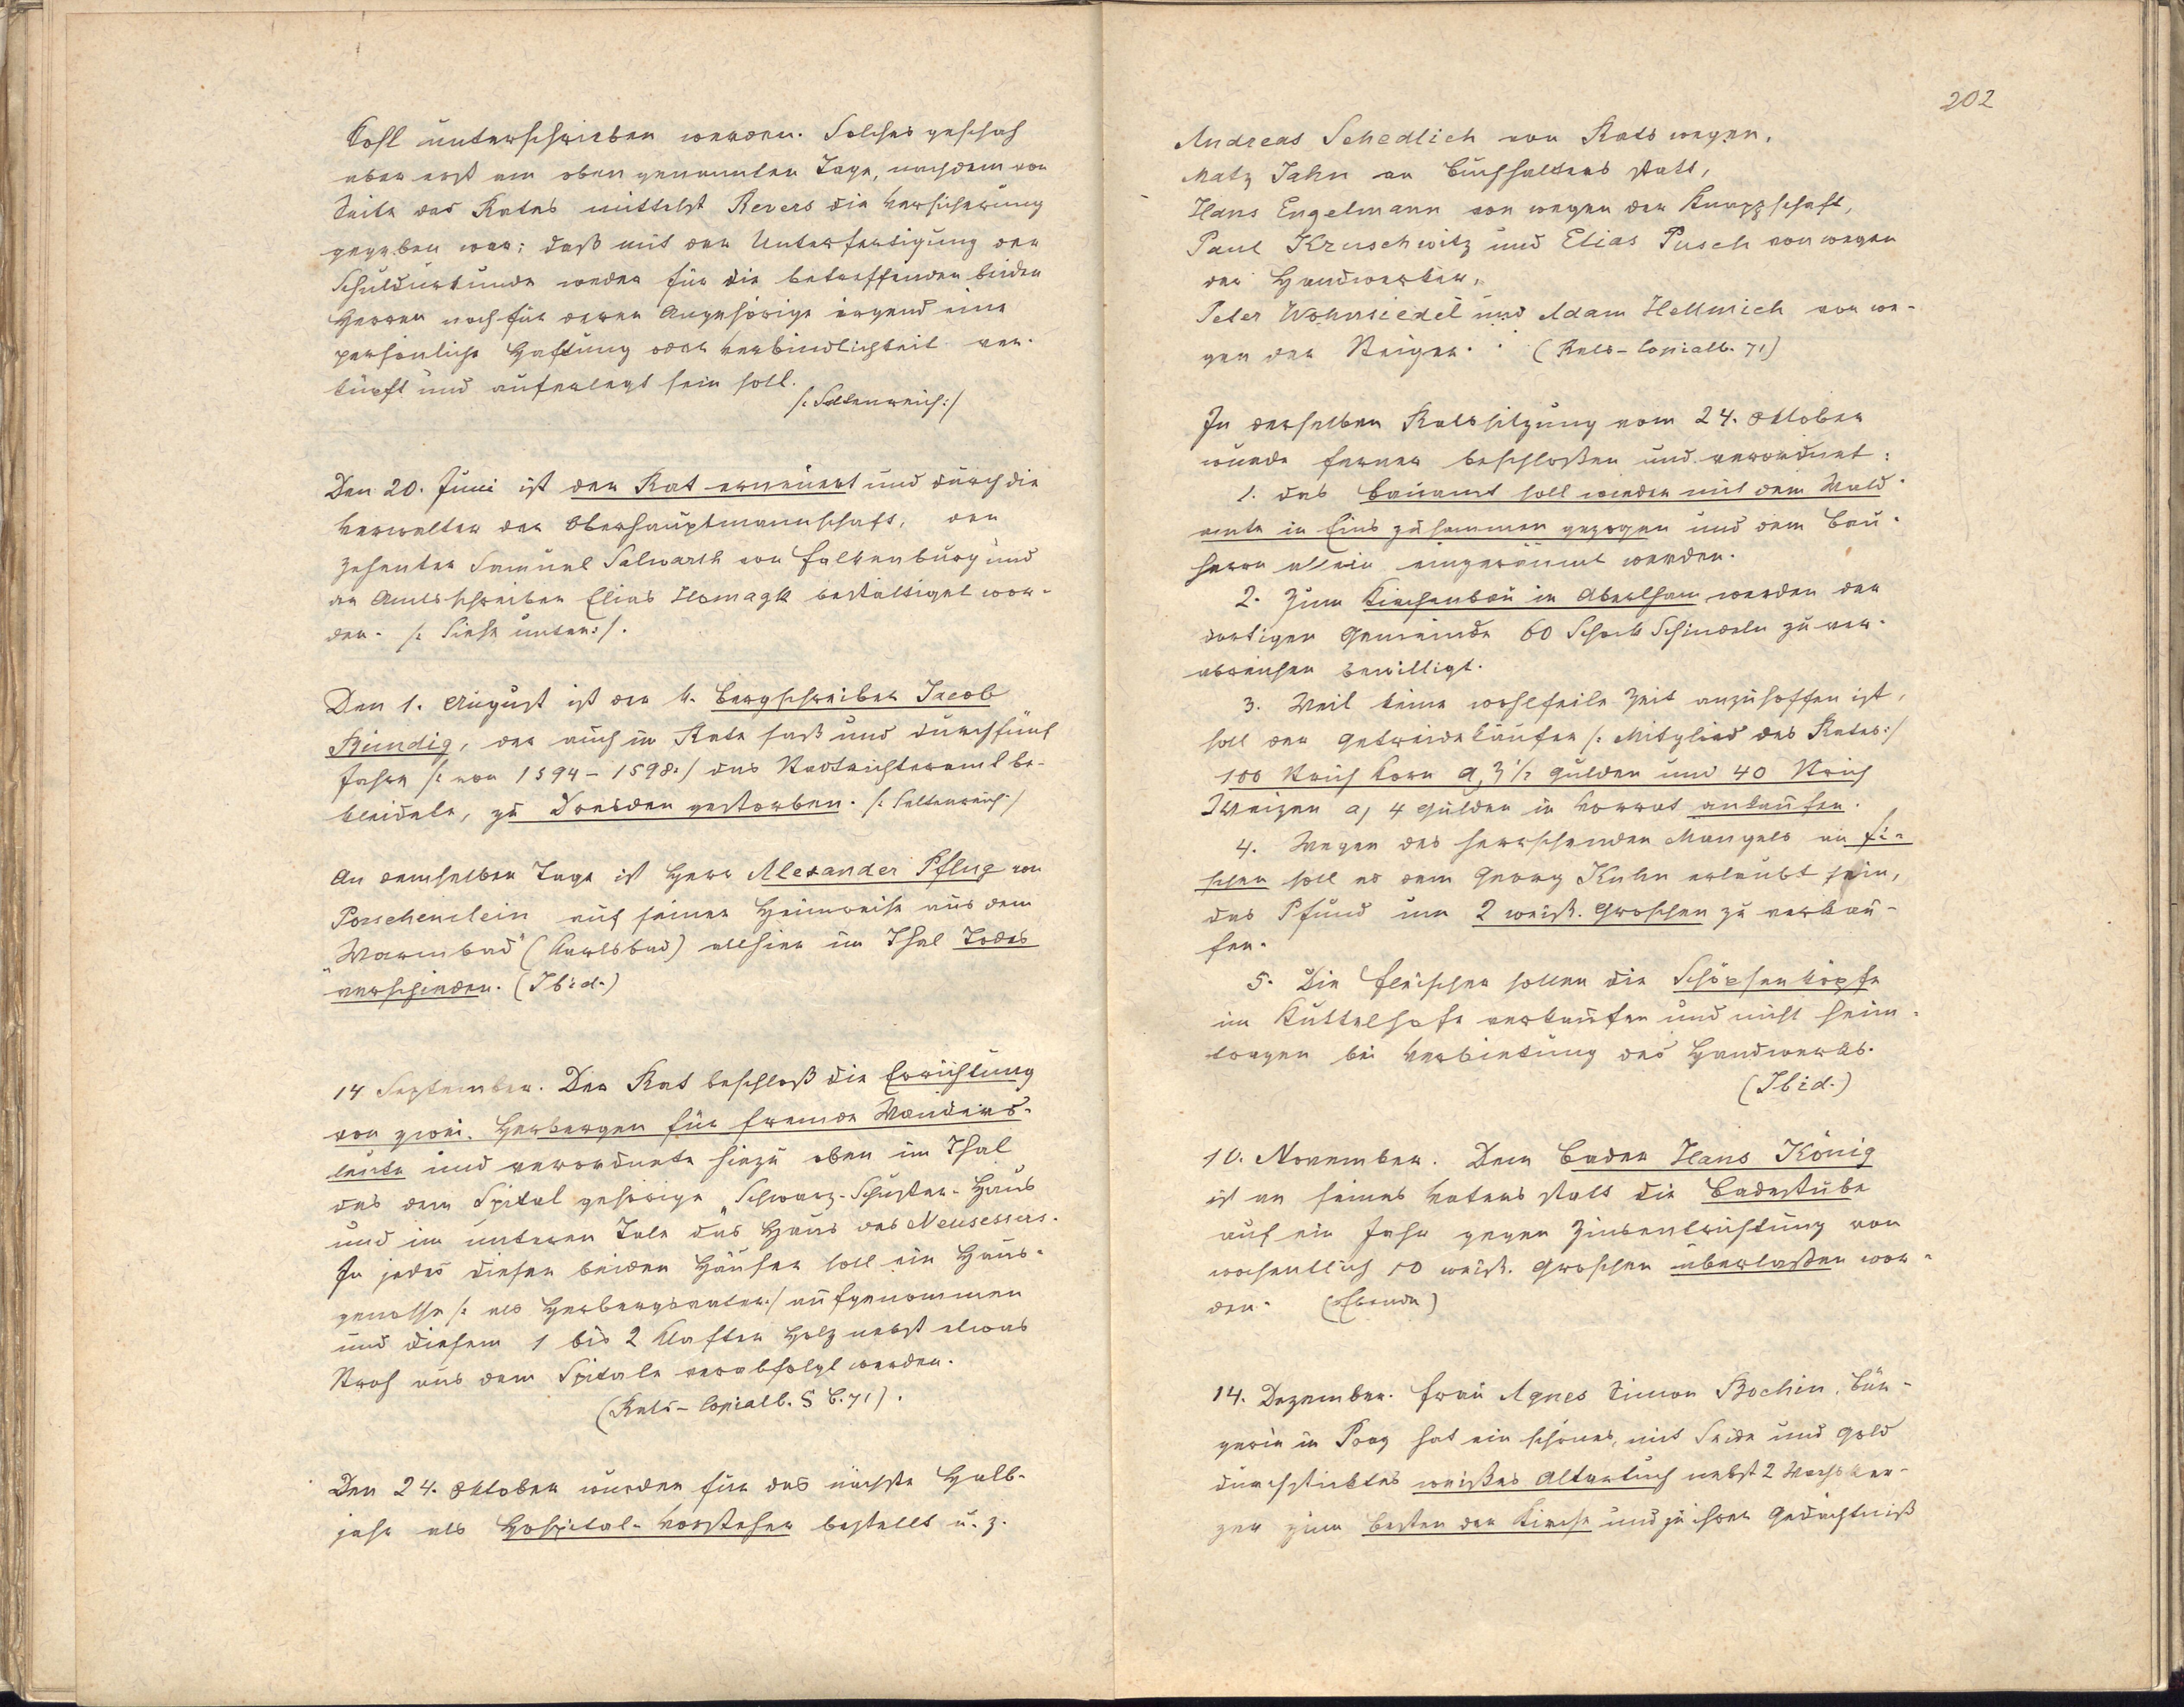 Kohl unterschrieben werden. Solches geschah
aber erst am oben genannten Tage, nachdem von
Seite des Rates mittelst Revers die Versicherung
gegeben war: daß mit der Unterfertigung der
Schuldurkunde weder für die betreffenden beiden
Herren noch für deren Angehörige irgend eine
persönliche Haftung oder Verbindlichkeit ver-
knüpft und auferlegt sein soll.
/: Seltenreich :/
Den 20. Juni ist der Rat erneuert und durch die
Verwalter der Oberhauptmannschaft, den
Zehenter Samuel Salwarth von Falkenburg und
den Amtsschreiber Elias Homagk bestättiget wor-
den. /: Siehe unten :/.
Den 1. August ist der k. Bergschreiber Jacob
Kündig, der auch im Rate saß und durch fünf
Jahre /: von 1594 - 1598 :/ das Stadtrichteramt be-
kleidete, zu Dresden gestorben. /: Seltenreich :/
An demselben Tage ist Herr Alexander Pflug von
Porschenstein auf seiner Heimreise aus dem
„Warmbad" (Karlsbad) allhier im Thal Todes
verschieden. (Ibid.)
14 September. Der Rat beschloß die Errichtung
von zwei Herbergen für fremde Wanders-
leute und verordnete hiezu oben im Thal
das dem Spital gehörige „Schwarz-Schuster-Haus
und im unteren Tale das Haus des Neusessers.
In jedes dieser beiden Häuser soll ein Haus-
genosse /: als Herbergsvater :/ aufgenommen
und diesem 1 bis 2 Klafter Holz nebst etwas
Stroh aus dem Spitale verabfolgt werden.
(Rats-Copialb. S b. 71).
Den 24. Oktober wurden für das nächste Halb-
jahr als Hospital-Vorsteher bestellt u. z.
202
Andreas Schedlich von Rats wegen,
Matz Jahn an Buchhalters statt,
Hans Engelmann von wegen der Knappschaft,
Paul Kruschwitz und Elias Pusch von wegen
der Handwerker,
Peter Wohnsiedel und Adam Hellmich von we-
gen der Steiger. (Rats-Copialb. 71)
In derselben Ratssitzung vom 24. Oktober
wurde ferner beschloßen und verordnet:
1. das Bauamt soll wieder mit dem Wald-
amte in Eins zusammen gezogen und dem Bau-
herrn allein eingeräumt werden.
2. Zum Kirchenbau in Abertham werden der
dortigen Gemeinde 60 Schock Schindeln zu ver-
abreichen bewilligt.
3. Weil keine wohlfeile Zeit anzuhoffen ist,
soll der Getreidekäufer /: Mitglied des Rates :/
100 Strich Korn a, 3½ Gulden und 40 Strich
Weizen a, 4 Gulden in Vorrat ankaufen.
4. Wegen des herrschenden Mangels an Fi-
schen soll es dem Georg Kuhn erlaubt sein,
das Pfund um 2 weiß. Groschen zu verkau-
fen.
5. Die Fleischer sollen die Schöpsenköpfe
im Kuttelhofe verkaufen und nicht heim-
tragen bei Verbietung des Handwerks.
(Ibid.)
10. November. Dem Bader Hans König
ist an seines Vaters statt die Badestube
auf ein Jahr gegen Zinsentrichtung von
wochentlich 10 weiß. Groschen überlaßen wor-
den. (Ebenda)
14. Dezember. Frau Agnes Simon Bochin, Bür-
gerin in Prag hat ein schönes, mit Seide und Gold
durchsticktes weißes Altartuch nebst 2 Wachsker-
zen zum Besten der Kirche und zu ihrer Gedächtniß